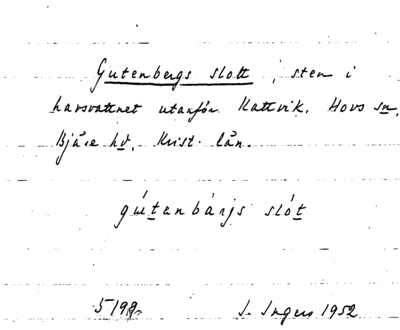 Gutenbergs slott, sten i
havsvattnet utanför Kattvik. Hovs sn,
Bjäre hd, Krist. län.
gútenbárjs slót
5198. I. Ingers 1952